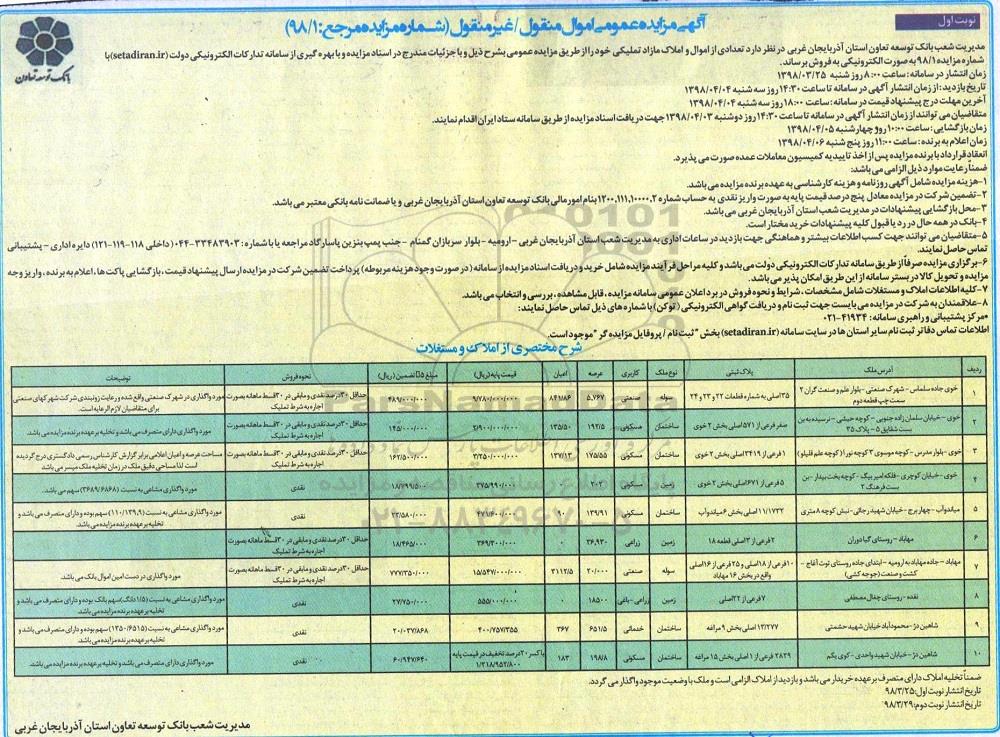 نوبت اول
آگهی مزایده عمومی اموال منقول/غیر منقول (شماره مزایده مرجع:۹۸/۱)
بانک توسعه تعاون
مدیریت شعب بانک توسعه تعاون استان آذربایجان غربی در نظر دارد تعدادی از اموال و املاک مازاد تملیکی خود را از طریق مزایده عمومی بشرح ذیل و با جزئیات مندرج در اسناد مزایده و با بهره گیری از سامانه تدارکات الکترونیکی دولت (setadiran.ir) با
شماره مزایده ۹۸/۱ به صورت الکترونیکی به فروش برساند.
زمان انتشار در سامانه: ساعت ۸:۰۰ روز شنبه ۱۳۹۸/۰۳/۲۵
تاریخ بازدید: از زمان انتشار آگهی در سامانه تا ساعت ۱۴:۳۰ روز سه شنبه ۱۳۹۸/۰۴/۰۴
آخرین مهلت درج پیشنهاد قیمت در سامانه: ساعت ۱۸:۰۰ روز سه شنبه ۱۳۹۸/۰۴/۰۴
متقاضیان می توانند از زمان انتشار آگهی در سامانه تا ساعت ۱۴:۳۰ روز دوشنبه ۱۳۹۸/۰۴/۰۳ جهت دریافت اسناد مزایده از طریق سامانه ستاد ایران اقدام نمایند.
زمان بازگشایی: ساعت ۱۰:۰۰ روز چهارشنبه ۱۳۹۸/۰۴/۰۵
زمان اعلام به برنده: ساعت ۱۱:۰۰ روز پنج شنبه ۱۳۹۸/۰۴/۰۶
انعقاد قرارداد با برنده مزایده پس از اخذ تاییدیه کمیسیون معاملات عمده صورت می پذیرد.
ضمناً رعایت موارد ذیل الزامی می باشد:
۱-هزینه مزایده شامل آگهی روزنامه و هزینه کارشناسی به عهده برنده مزایده می باشد.
۲-تضمین شرکت در مزایده معادل پنج درصد قیمت پایه به صورت واریز نقدی به حساب شماره ۱۲۰۰.۱۱۱.۱۰۰۰۰.۲ بنام امور مالی بانک توسعه تعاون استان آذربایجان غربی و یا ضمانت نامه بانکی معتبر می باشد.
۳-محل بازگشایی پیشنهادات در مدیریت شعب استان آذربایجان غربی می باشد.
۴-بانک در همه حال در رد یا قبول کلیه پیشنهادات خرید مختار است.
۵-متقاضیان می توانند جهت کسب اطلاعات بیشتر و هماهنگی جهت بازدید در ساعات اداری به مدیریت شعب استان آذربایجان غربی - ارومیه - بلوار سربازان گمنام - جنب پمپ بنزین پاسارگاد مراجعه یا با شماره: ۳۳۴۸۳۹۰۳-۰۴۴ (داخلی ۱۱۸-۱۱۹-۱۲۱) دایره اداری - پشتیبانی
تماس حاصل نمایند.
۶-برگزاری مزایده صرفاً از طریق سامانه تدارکات الکترونیکی دولت می باشد و کلیه مراحل فرآیند مزایده شامل خرید و دریافت اسناد مزایده از سامانه (در صورت وجود هزینه مربوطه) پرداخت تضمین شرکت در مزایده ارسال پیشنهاد قیمت، بازگشایی پاکت ها، اعلام به برنده، واریز وجه
مزایده و تحویل کالا در بستر سامانه از این طریق امکان پذیر می باشد.
۷-کلیه اطلاعات املاک و مستغلات شامل مشخصات، شرایط و نحوه فروش در برد اعلان عمومی سامانه مزایده، قابل مشاهده، بررسی و انتخاب می باشد.
۸-علاقمندان به شرکت در مزایده می بایست جهت ثبت نام و دریافت گواهی الکترونیکی (توکن) با شماره های ذیل تماس حاصل نمایند:
•مرکز پشتیبانی و راهبری سامانه: ۴۱۹۳۴-۰۲۱
اطلاعات تماس دفاتر ثبت نام سایر استان ها در سایت سامانه (setadiran.ir) بخش "ثبت نام / پروفایل مزایده گر" موجود است.
شرح مختصری از املاک و مستغلات
ردیف آدرس ملک پلاک ثبتی نوع ملک کاربری عرصه اعیان قیمت پایه (ریال) مبلغ ۵٪ تضمین (ریال) نحوه فروش توضیحات
۱ خوی جاده سلماس - شهرک صنعتی - بلوار علم و صنعت گران ۲ سمت چپ قطعه دوم ۳۵ اصلی به شماره قطعات ۲۲ و ۲۳ و ۲۴ سوله صنعتی ۵.۷۶۷ ۸۴۱/۸۶ ۹/۷۸۰/۰۰۰/۰۰۰ ۴۸۹/۰۰۰/۰۰۰ حداقل ۳۰ درصد نقدی و مابقی در ۳۰ قسط ماهانه بصورت اجاره به شرط تملیک مورد واگذاری در شهرک صنعتی واقع شده و رعایت زونبندی شرکت شهرکهای صنعتی برای متقاضیان لازم الرعایه است.
۲ خوی - خیابان سلمان زاده جنوبی - کوچه حبشی - نرسیده به بن بست شقایق ۵ - پلاک ۳۵ صفر فرعی از ۵۷۱ اصلی بخش ۲ خوی ساختمان مسکونی ۱۹۲/۵ ۱۳۵/۵۰ ۲/۹۰۰/۰۰۰/۰۰۰ ۱۴۵/۰۰۰/۰۰۰ حداقل ۳۰ درصد نقدی و مابقی در ۳۰ قسط ماهانه بصورت اجاره به شرط تملیک مورد واگذاری دارای متصرف می باشد و تخلیه بر عهده برنده مزایده می باشد
۳ خوی - بلوار مدرس - کوچه موسوی ۲ کوچه نور ۱ (کوچه علم قلیلو) ۱ فرعی از ۳۴۱۹ اصلی بخش ۲ خوی ساختمان مسکونی ۱۷۵/۵۵ ۱۳۷/۱۳ ۳/۲۵۰/۰۰۰/۰۰۰ ۱۶۲/۵۰۰/۰۰۰ حداقل ۳۰ درصد نقدی و مابقی در ۳۰ قسط ماهانه بصورت اجاره به شرط تملیک مساحت عرصه و اعیان اعلامی برابر گزارش کارشناس رسمی دادگستری درج گردیده است لذا مساحی دقیق ملک در زمان تخلیه ملک میسر می باشد
۴ خوی - خیابان کوچری - فلکه امیر بیگ - کوچه بخت بیدار - بن بست فرهنگ ۲ ۵ فرعی از ۶۷۱ اصلی بخش ۲ خوی زمین مسکونی ۲۰۲ ۰ ۳۷۵/۹۹۰/۰۰۰ ۱۸/۷۹۹/۵۰۰ نقدی مورد واگذاری مشاعی به نسبت (۳۶۸۹/۶۸۶۸) سهم می باشد.
۵ میاندوآب - چهار برج - خیابان شهید رجائی - نبش کوچه ۸ متری ۱۱/۱۷۳۲ اصلی بخش ۶ میاندوآب ساختمان مسکونی ۱۳۹/۹۱ ۹۰ ۴۷۱/۶۰۰/۰۰۰ ۲۳/۵۸۰/۰۰۰ نقدی مورد واگذاری مشاعی به نسبت (۱۱۰/۱۳۹.۹۱) سهم بوده و دارای متصرف می باشد و تخلیه بر عهده برنده مزایده می باشد
۶ مهاباد - روستای گیا دوران ۲ فرعی از ۳ اصلی قطعه ۱۸ زمین زراعی ۳۶,۹۳۰ ۰ ۳۶۹/۳۰۰/۰۰۰ ۱۸/۴۶۵/۰۰۰ حداقل ۳۰ درصد نقدی و مابقی در ۳۰ قسط ماهانه بصورت اجاره به شرط تملیک
۷ مهاباد - جاده مهاباد به ارومیه - ابتدای جاده روستای توت آغاج - کشت و صنعت (جوجه کشی) ۱۰ فرعی از ۱۸ اصلی و ۲۵ فرعی از ۱۶ اصلی واقع در بخش ۱۶ مهاباد سوله صنعتی ۲۰/۰۰۰ ۳۱۱۲/۵ ۱۵/۵۴۷/۰۰۰/۰۰۰ ۷۷۷/۳۵۰/۰۰۰ حداقل ۳۰ درصد نقدی و مابقی در ۳۰ قسط ماهانه بصورت اجاره به شرط تملیک مورد واگذاری در دست امین اموال بانک می باشد
۸ نقده - روستای چغال مصطفی ۷ فرعی از ۲۲ اصلی زمین زراعی - باغی ۱۸۵۰۰ ۰ ۵۵۵/۰۰۰/۰۰۰ ۲۷/۷۵۰/۰۰۰ نقدی مورد واگذاری مشاعی به نسبت (۱/۵ دانگ) سهم بانک بوده و دارای متصرف می باشد و تخلیه بر عهده برنده مزایده می باشد
۹ شاهین دژ - محمودآباد خیابان شهید حشمتی ۱۳/۲۷۷ اصلی بخش ۹ مراغه ساختمان خدماتی ۶۵۱/۵ ۳۶۷ ۴۰۰/۷۵۷/۳۵۵ ۲۰/۰۳۷/۸۶۸ نقدی مورد واگذاری مشاعی به نسبت (۱۳۵۰/۶۵۱۵) سهم بوده و دارای متصرف می باشد و تخلیه بر عهده برنده مزایده می باشد
۱۰ شاهین دژ - خیابان شهید واحدی - کوی یکم ۲۸۲۹ فرعی از ۱ اصلی بخش ۱۵ مراغه ساختمان مسکونی ۱۹۸/۸ ۱۸۳ با کسر ۲۰ درصد تخفیف در قیمت پایه ۱/۲۱۸/۹۵۲/۸۰۰ ۶۰/۹۴۷/۶۴۰ نقدی مورد واگذاری دارای متصرف می باشد و تخلیه بر عهده برنده مزایده می باشد
ضمناً تخلیه املاک دارای متصرف بر عهده خریدار می باشد و بازدید از املاک الزامی است و ملک با وضعیت موجود واگذار می گردد.
تاریخ انتشار نوبت اول: ۹۸/۳/۲۵
تاریخ انتشار نوبت دوم: ۹۸/۳/۲۹
مدیریت شعب بانک توسعه تعاون استان آذربایجان غربی